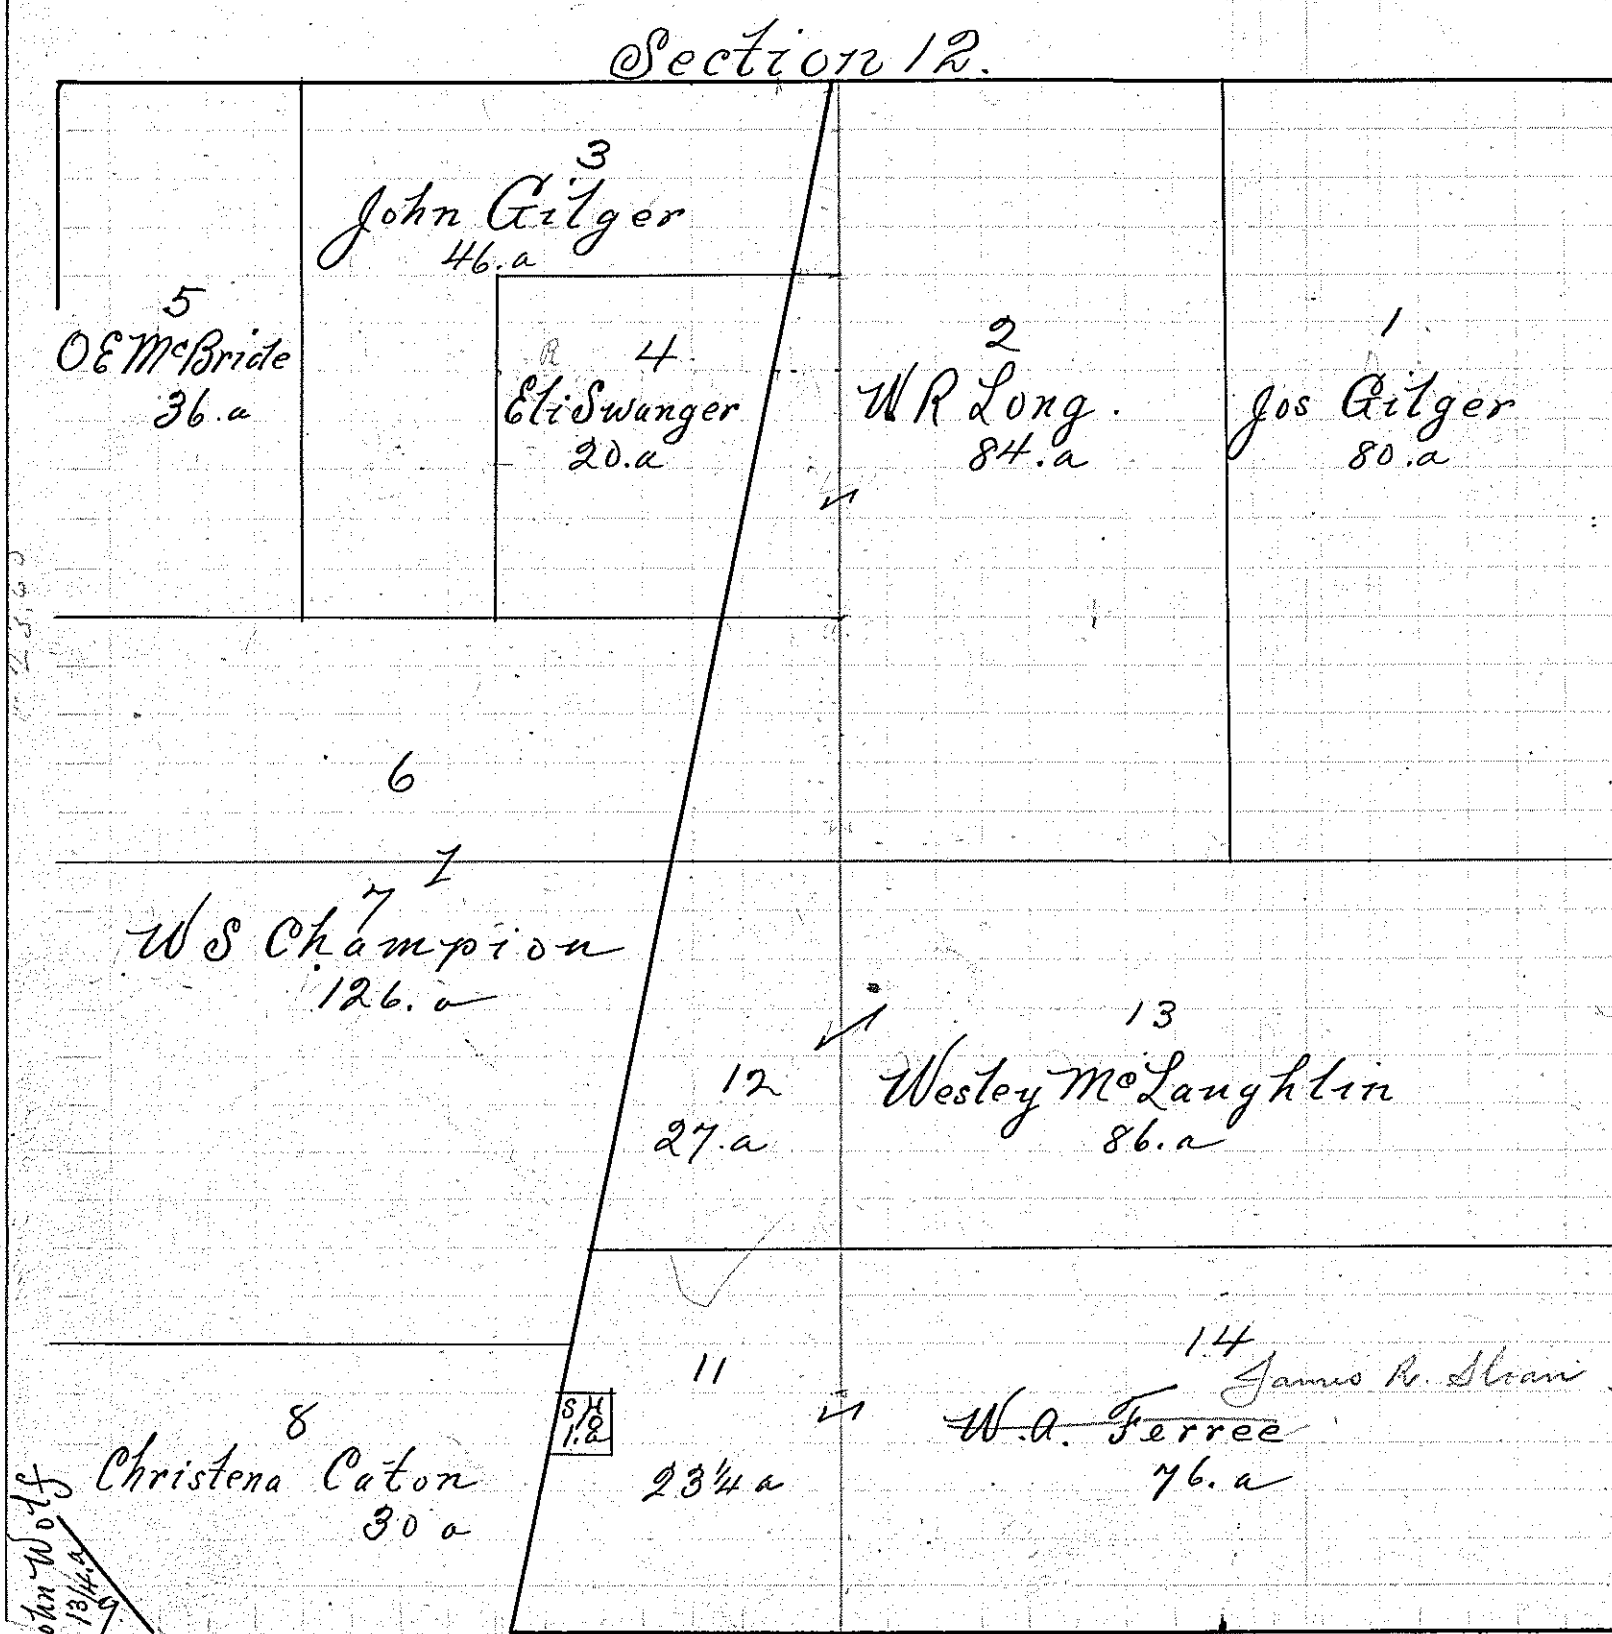 Section 12.
3
John Gilger
46.a
5
O E McBride
36.a
R 4
Eli Swanger
20.a
2
W R Long.
84.a
1
Jos Gilger
80.a
6
7
W S Champion
126.a
12
27.a
13
Wesley McLaughlin
86.a
11
23 1/4 a
S H
1.a
14
James R. Sloan
W.A. Ferree
76.a
8
Christena Caton
30 a
ohn Wolf
13/4.a
9